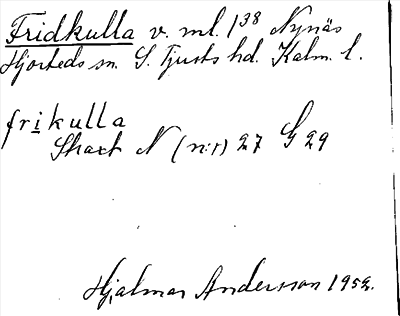 Fridkulla v. ml. 1³⁸ Nynäs
Hjorteds sn. S. Tjusts hd. Kalm. l.
frikulla
Skaxt N (n:r) 27 G 29
Hjalmar Andersson 1952.